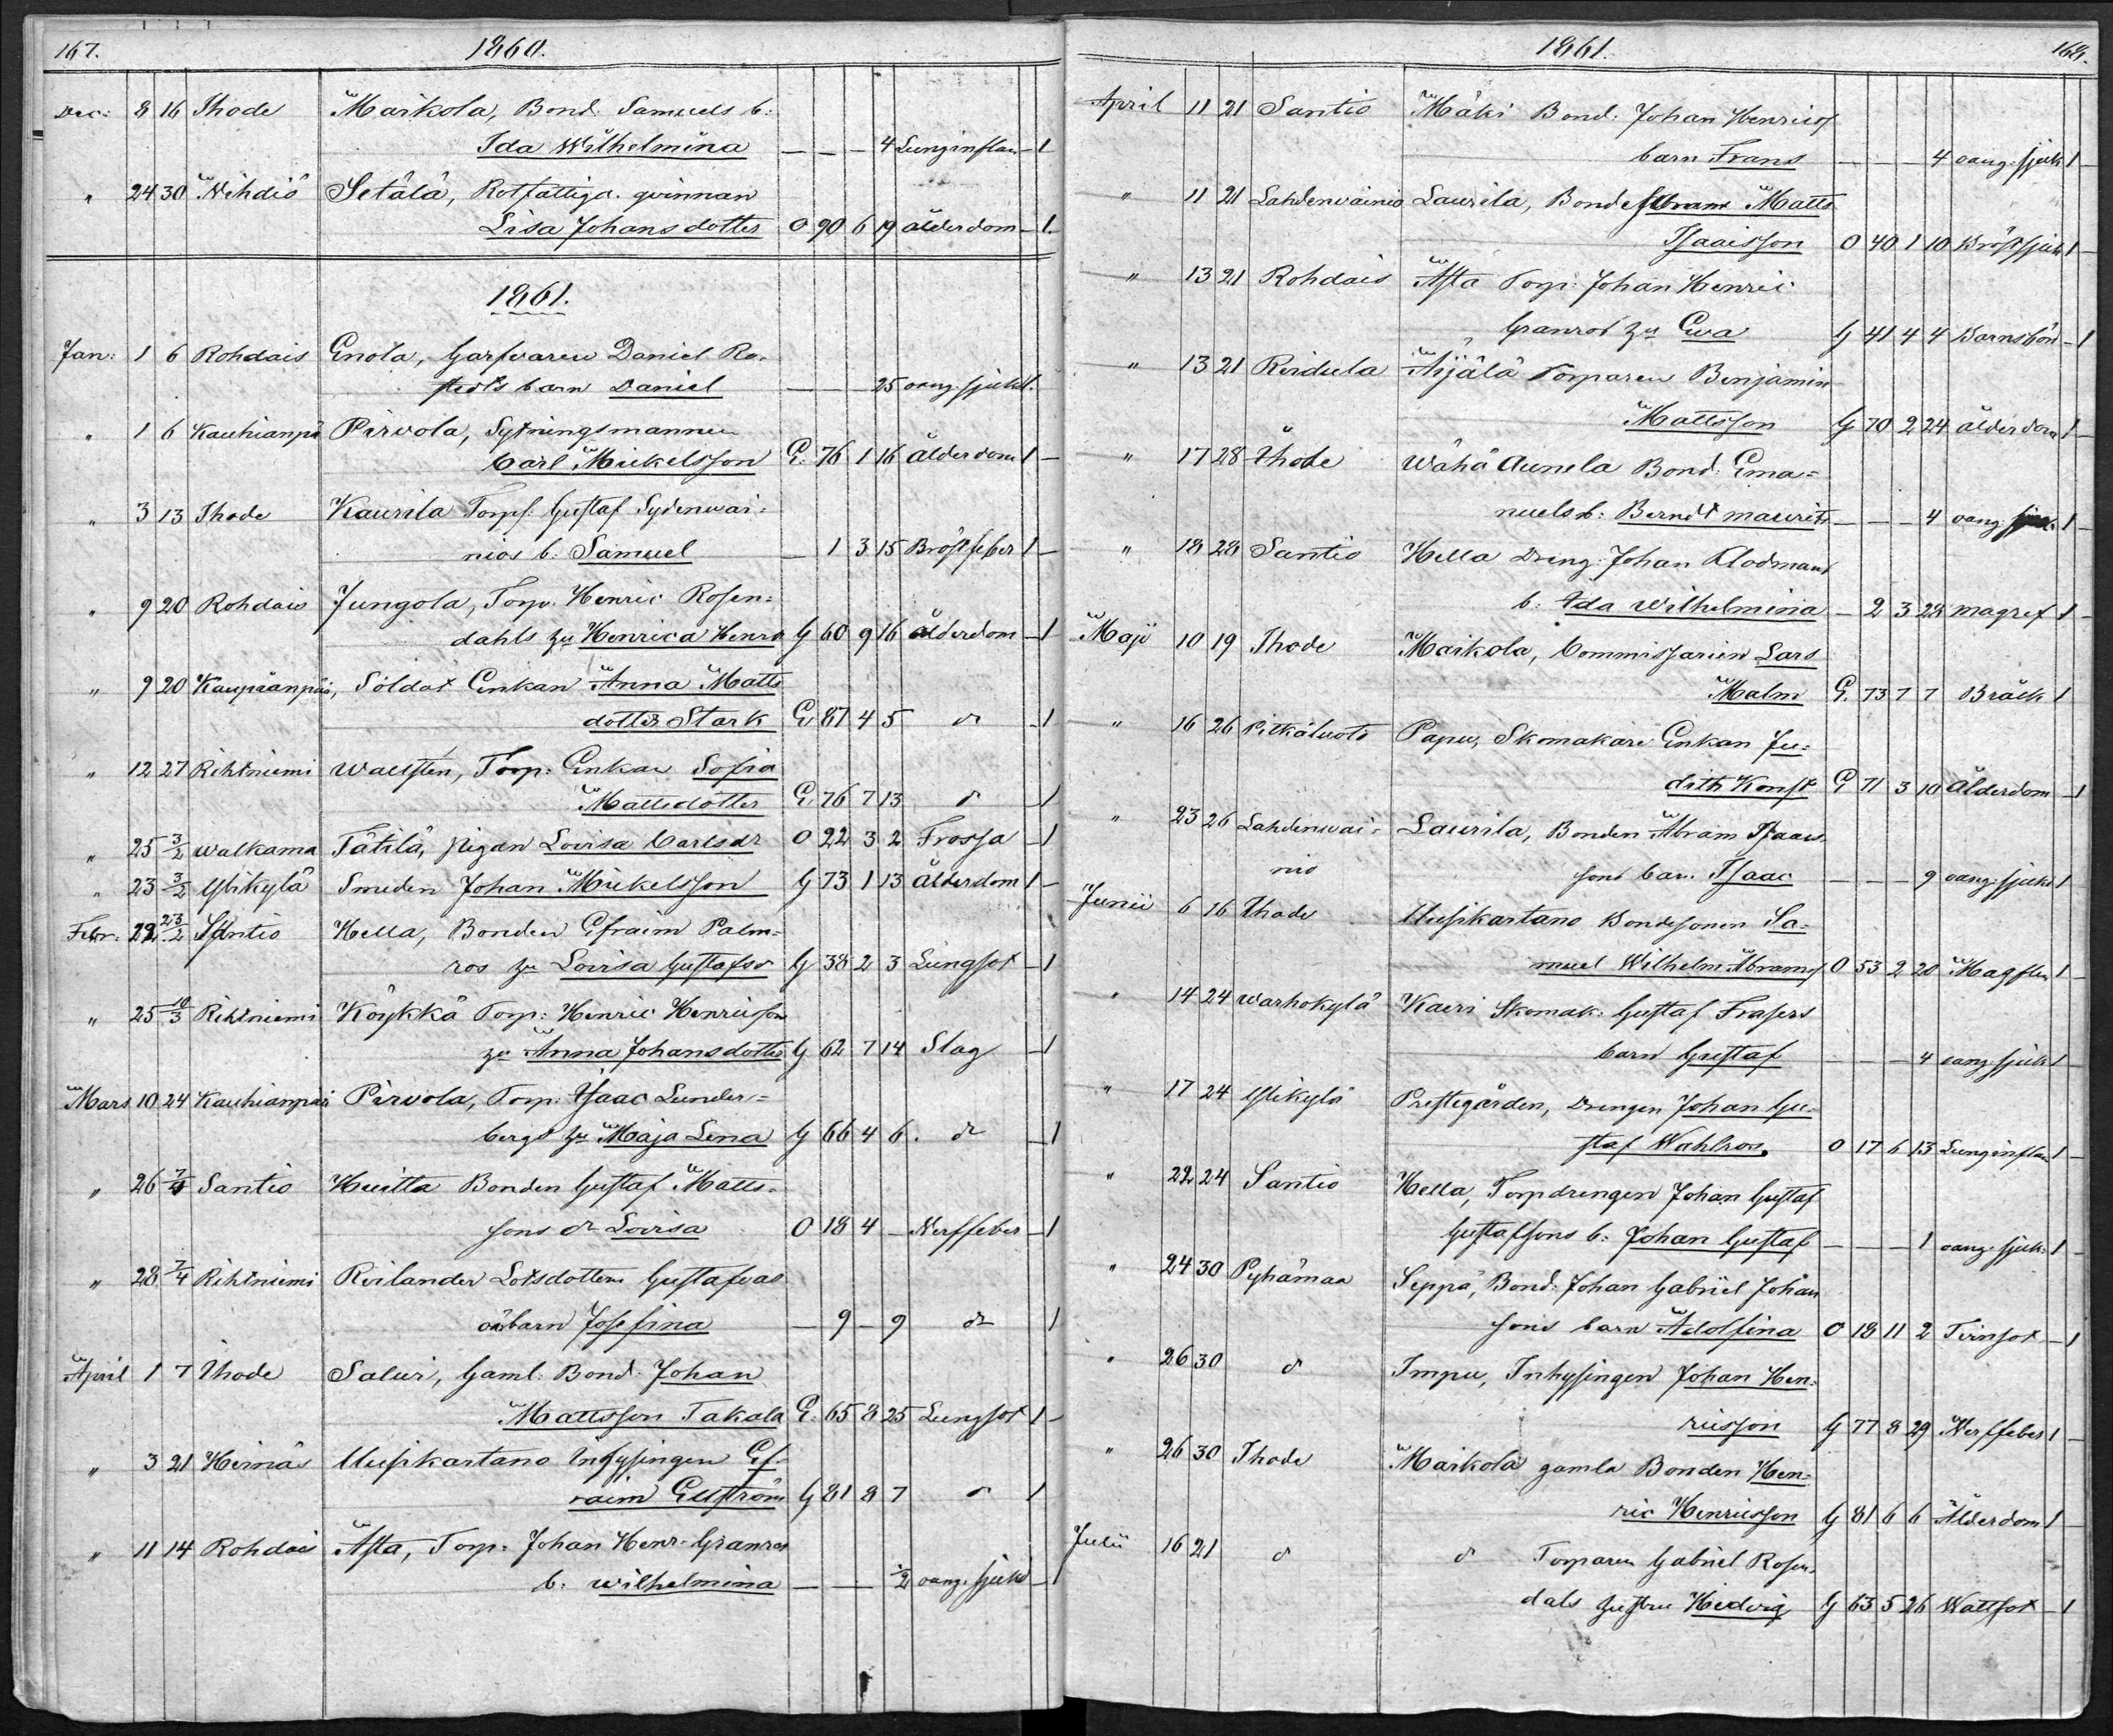 167. 1860.
Dec: 8 16 Ihode Markola, Bond. Samuels b:
Ida Wilhelmina — — — 4 Lunginflam — 1
" 24 30 Nihdiö Setälä, Rotfattiga qvinnan
Lisa Johansdotter O 90 6 19 ålderdom — 1.
1861.
Jan: 1 6 Rohdais Enola, Garfvaren Daniel Ro-
stedts barn Daniel — — — 25 oang. sjukd 1.
" 1 6 Kauhianpä Pirvola, Sytningsmannen
Carl Mickelsson E. 76 1 16 Ålderdom 1 —
" 3 13 Ihode Kaurila Torp. Gustaf Sydenwai-
nios b. Samuel — 1 3 15 Bröstfeber 1 —
" 9 20 Rohdais Jungola, Torp. Henric Rosen-
dahls hu Henrica Henrs G 60 9 16 ålderdom — 1
" 9 20 Kaupianpää, Soldat Enkan Anna Matts
dotter Stark E 87 4 5 d — 1
" 12 27 Rihtniemi Wallsten, Torp: Enkan Sofia
Mattsdotter E 76 7 13 d 1
" 25 3/2 Walkama Tätilä, pigan Lovisa Carlsdr O 22 3 2 Frossa — 1
" 23 3/2 Ylikylä Smeden Johan Mickelsson G 73 1 13 Ålderdom 1 —
Febr. 22 23/2 Santio Hella, Bonden Efraim Palm-
ros hu Lovisa Gustafsd G 38 2 3 Lungsot — 1
" 25 10/3 Rihtniemi Köykkä Torp: Henric Henricsson
hu Anna Johansdotter G 62 7 14 Slag — 1
Mars 10 24 Kauhianpää Pirvola, Torp: Isaac Lunder-
bergs hu Maja Lena G 66 4 6. d — 1
" 26 7/4 Santio Huitta Bonden Gustaf Matts-
sons dr Lovisa O 18 4 — Nerffeber — 1
" 28 7/4 Rihtniemi Reilander Lotsdottern Gustafvas
oäbarn Josefina — 9 — 9 d 1
April 1 7 Ihode Salui, Gaml. Bond. Johan
Mattsson Takala E. 65 8 25 Lungsot 1 —
" 3 21 Heinäs Uusikartano Inhysingen Ef-
raim Ellström G 81 8 7 d 1
" 11 14 Rohdais Asta, Torp. Johan Henr. Granros
b. Wilhelmina — — — 1/2 oang. sjukd — 1
1861. 168.
April 11 21 Santio Mäki Bond. Johan Henricss
barn Frans — — — 4 oang. sjuk 1 —
" 11 21 Lahdenwainio Laurila, Bonde Abram Matts
Isaaisson O 40 1 10 Bröstsjuk 1 —
" 13 21 Rohdais Asta Torp. Johan Henric
Granros hu Eva G 41 4 4 Barnsbörd — 1
" 13 21 Reidula Äijälä Torparen Benjamin
Mattsson G 70 2 24 ålderdom 1 —
" 17 28 Ihode Wähä Aunela Bond. Ema-
nuels b: Berndt Maurits — — — 4 oang. sjuk. 1 —
" 18 28 Santio Hella Dreng. Johan Klodmans
b. Ida Wilhelmina — 2 3 28 magref 1 —
Maji 10 19 Ihode Markola, Commissarien Lars
Malm E. 73 7 7 Bråck 1
" 16 26 Pitkäluoto Papu, Skomakare Enkan Ju-
dith Konst E 71 3 10 Ålderdom — 1
" 23 26 Lahdenwai- Laurila, Bonden Abram Isaacs
nio sons barn Isaac — — — 9 oang. sjukd 1
Junii 6 16 Ihode Uusikartano Bondesonen Sa-
muel Wilhelm Abrams O 53 2 20 Magflu 1 —
" 14 24 Warhokylä Kaeri Skomak. Gustaf Frasers
barn Gustaf — — — 4 oang. sjuk 1 —
" 17 24 Ylikylä Prestegården, Drengen Johan Gu-
staf Wahlroos O 17 6 13 Lunginflam 1 —
" 22 24 Santio Hella, Torpdrengen Johan Gustaf
Gustafssons b. Johan Gustaf — — — 1 oang. sjuk. 1 —
" 24 30 Pyhämaa Seppä, Bond. Johan Gabriel Johan
sons barn Adolfina O 18 11 2 Tvinsot — 1
" 26 30 d Impu, Inhysingen Johan Hen-
ricsson G 77 8 29 Nerffeber 1 —
" 26 30 Ihode Markola gamla Bonden Hen-
ric Henricsson G 81 6 6 Ålderdom 1 —
Julii 16 21 d d Torparen Gabriel Rosen-
dals hustru Hedvig G 63 5 26 Wattsot — 1